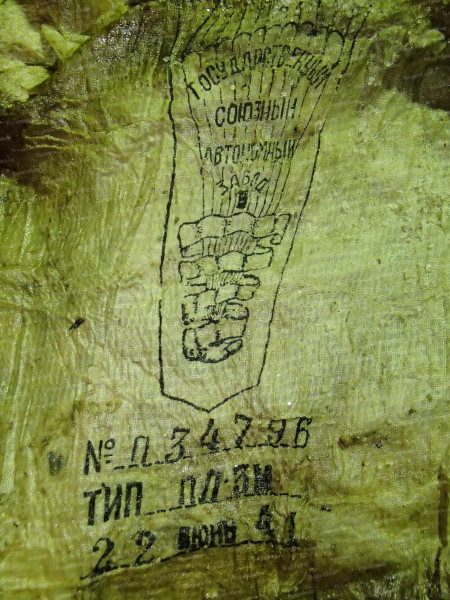 ГОСУДАРСТВЕННЫЙ
СОЮЗНЫЙ
АВТОНОМНЫЙ
ЗАВОД
№ П 3 4 7 9 6
ТИП ПЛ-3М
22 ИЮНЬ 41